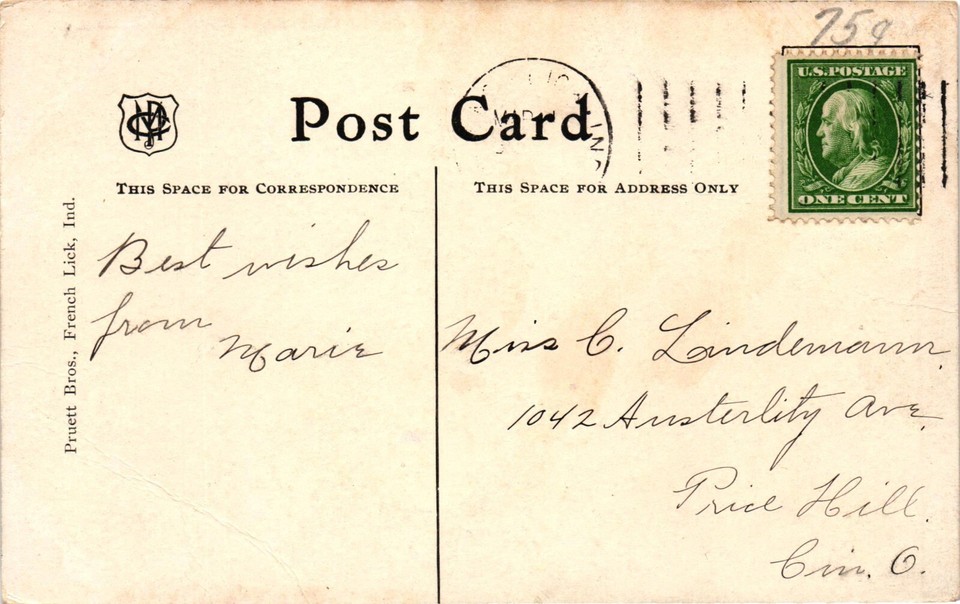 75¢
U.S. POSTAGE
ONE CENT
Post Card
THIS SPACE FOR CORRESPONDENCE
THIS SPACE FOR ADDRESS ONLY
Pruett Bros., French Lick, Ind.
Best wishes
from
Marie
Miss C. Lindemann.
1042 Austerlity Ave.
Price Hill.
Cin. O.